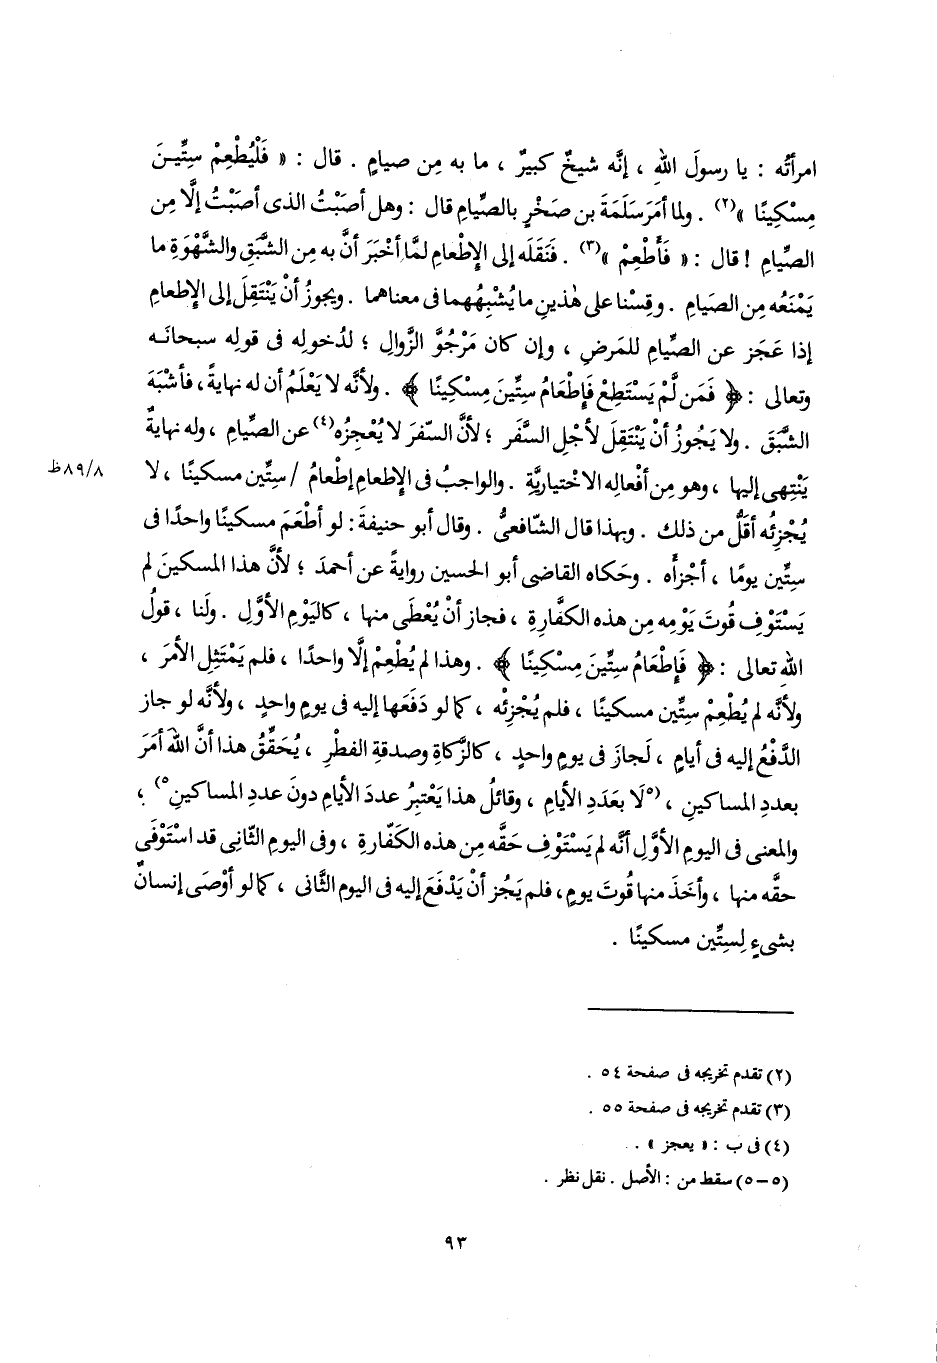 امرأتُه : يا رسولَ اللهِ ، إنَّه شيخٌ كبيرٌ ، ما به مِن صيامٍ . قال : « فَلْيُطْعِمْ سِتِّينَ
مِسْكِينًا »(٢) . ولما أمَرَ سَلَمَةَ بن صَخْرٍ بالصِّيامِ قال : وهل أصَبْتُ الذى أصَبْتُ إلَّا مِن
الصِّيامِ ! قال : « فَأَطْعِمْ »(٣) . فنَقَلَه إلى الإِطْعامِ لمَّا أخْبَرَ أنَّ به مِن الشَّبَقِ والشَّهْوَةِ ما
يَمْنَعُه مِن الصيَامِ . وقِسْنا على هٰذينِ ما يُشْبِهُهما فى معناهما . ويجوزُ أنْ يَنْتَقِلَ إلى الإطعامِ
إذا عَجَز عن الصِّيامِ للمَرضِ ، وإن كان مَرْجُوَّ الزَّوالِ ؛ لدُخولِه فى قولِه سبحانَه
وتعالى : ﴿ فَمَن لَّمْ يَسْتَطِعْ فَإِطْعَامُ سِتِّينَ مِسْكِينًا ﴾ . ولأنَّه لا يَعْلَمُ أن له نهايةً ، فأشْبَهَ
الشَّبَقَ . ولا يَجُوزُ أنْ يَنْتَقِلَ لأجْلِ السَّفَر ؛ لأنَّ السّفرَ لا يُعْجِزُه(٤) عن الصيامِ ، وله نهايةٌ
يَنْتِهى إليها ، وهو مِن أفْعالِه الاخْتياريَّةِ . والواجبُ فى الإطعامِ إطْعامُ / سِتِّين مسكينًا ، لا
٨٩/٨ظ
يُجْزِئُه أقَلُّ من ذلك . وبهذا قال الشّافعىُّ . وقال أبو حنيفةَ : لو أطْعَمَ مسكينًا واحدًا فى
سِتِّين يومًا ، أجْزأه . وحَكاه القاضى أبو الحسين روايةً عن أحمدَ ؛ لأنَّ هذا المسكينَ لم
يَسْتَوْفِ قُوتَ يَوْمِه مِن هذه الكفَّارةِ ، فجاز أنْ يُعْطَى منها ، كاليَوْمِ الأوَّلِ . ولَنا ، قولُ
اللهِ تعالى : ﴿ فَإِطْعَامُ سِتِّينَ مِسْكِينًا ﴾ . وهذا لم يُطْعِمْ إلَّا واحدًا ، فلم يَمْتَثِلِ الأمرَ ،
ولأنَّه لم يُطْعِمْ سِتِّين مسكينًا ، فلم يُجْزِئْه ، كما لو دَفَعَها إليه فى يومٍ واحدٍ ، ولأنَّه لو جاز
الدَّفْعُ إليه فى أيامٍ ، لَجازَ فى يومٍ واحدٍ ، كالزَّكاةِ وصدقةِ الفطْرِ ، يُحَقِّقُ هذا أنَّ اللهَ أمَرَ
بعددِ المساكينِ ، (٥لَا بعَدَدِ الأيامِ ، وقائلُ هذا يَعْتبِرُ عددَ الأيامِ دونَ عددِ المساكينِ٥) ،
والمعنى فى اليومِ الأوَّلِ أنَّه لم يَسْتَوْفِ حَقَّه مِن هذه الكَفّارةِ ، وفى اليومِ الثّانِى قد اسْتَوْفَى
حقَّه منها ، وأخَذَ منها قُوتَ يومٍ ، فلم يَجُز أنْ يَدْفَعَ إليه فى اليوم الثَّانى ، كما لو أوْصَى إنسانٌ
بشىءٍ لِسِتِّين مسكينًا .
(٢) تقدم تخريجه فى صفحة ٥٤ .
(٣) تقدم تخريجه فى صفحة ٥٥ .
(٤) فى ب : « يعجز » .
(٥ – ٥) سقط من : الأصل . نقل نظر .
٩٣